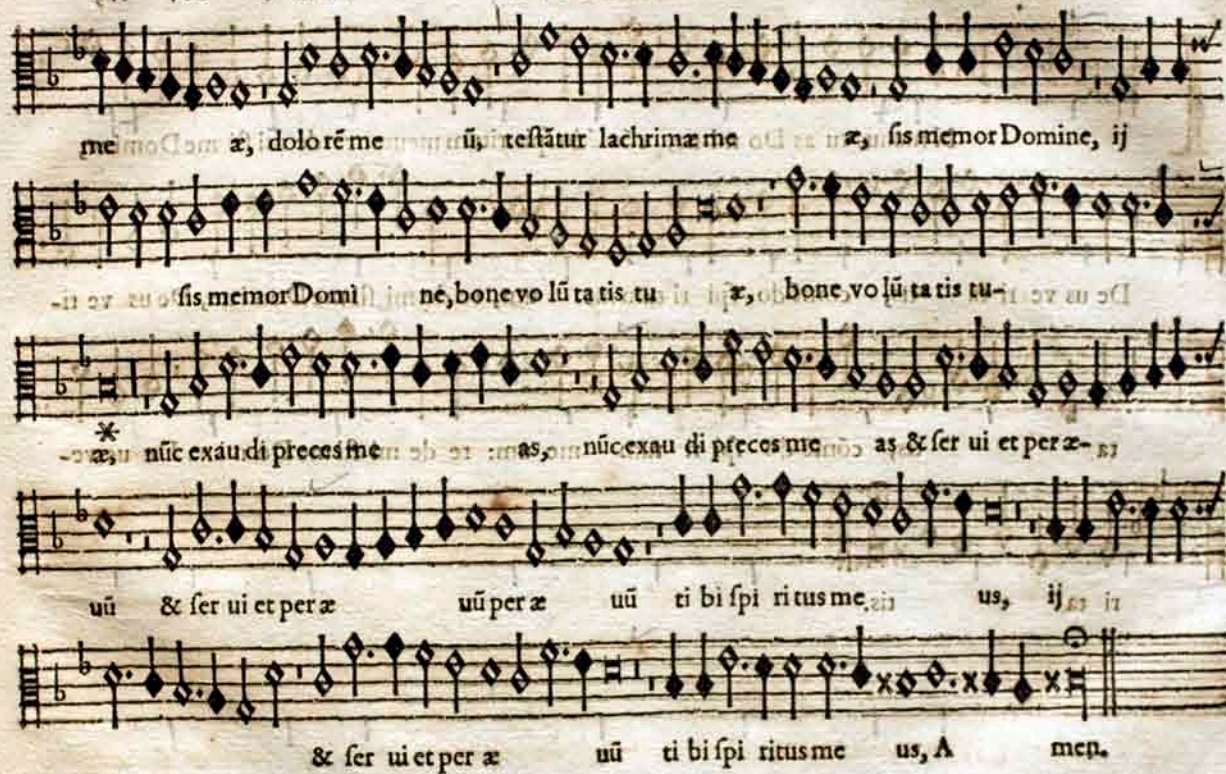 me æ, dolo rē me ū, testātur lachrimæ me æ, sis memor Domine, ij
sis memor Domi ne, bone vo lū ta tis tu æ, bone vo lū ta tis tu-
æ, nūc exau di preces me as, nūc exau di preces me as & ser ui et per æ-
uū & ser ui et per æ uū per æ uū ti bi spi ri tus me us, ij
& ser ui et per æ uū ti bi spi ritus me us, A men.